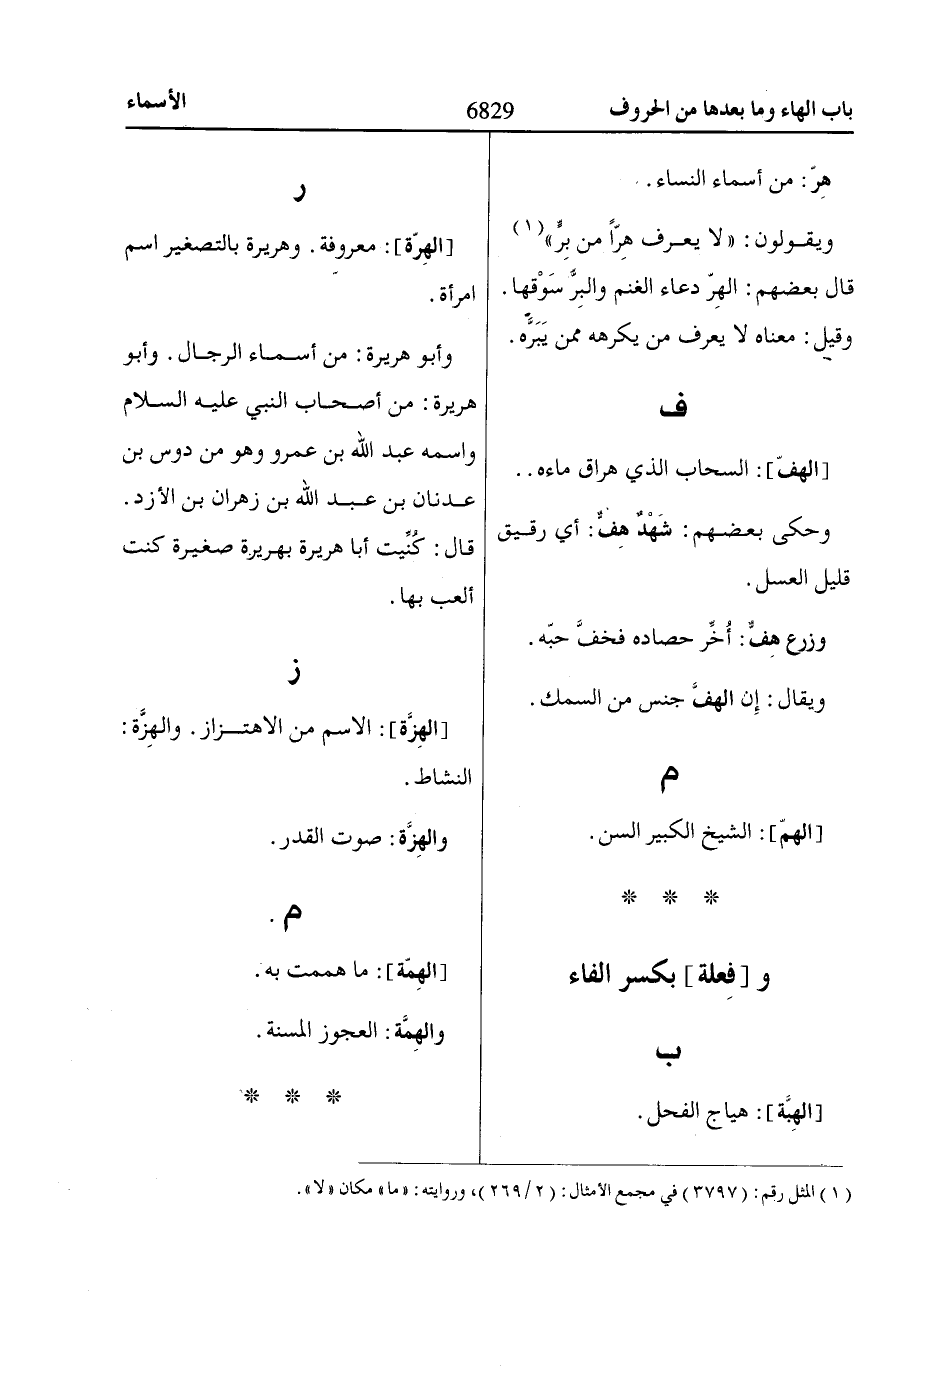 باب الهاء وما بعدها من الحروف
6829
الأسماء
هِرّ: من أسماء النساء.
ويقولون: «لا يعرف هِرّاً من بِرٍّ»(١)
قال بعضهم: الهِرّ دعاء الغنم والبرُّ سَوْقها.
وقيل: معناه لا يعرف من يكرهه ممن يَبَرُّه.
ف
[الهِفّ]: السحاب الذي هراق ماءه..
وحكى بعضهم: شَهْدٌ هِفٌّ: أي رقيق
قليل العسل.
وزرع هِفٌّ: أُخِّر حصاده فخفَّ حبّه.
ويقال: إِن الهفَّ جنس من السمك.
م
[الهِمّ]: الشيخ الكبير السن.
* * *
و [فِعلة] بكسر الفاء
ب
[الهِبَّة]: هياج الفحل.
ر
[الهِرّة]: معروفة. وهريرة بالتصغير اسم
امرأة.
وأبو هريرة: من أسماء الرجال. وأبو
هريرة: من أصحاب النبي عليه السلام
واسمه عبد الله بن عمرو وهو من دوس بن
عدنان بن عبد الله بن زهران بن الأزد.
قال: كُنِّيت أبا هريرة بهريرة صغيرة كنت
ألعب بها.
ز
[الهِزَّة]: الاسم من الاهتزاز. والهِزَّة:
النشاط.
والهِزَّة: صوت القدر.
م.
[الهِمّة]: ما هممت به.
والهِمَّة: العجوز المسنة.
* * *
(١) المثل رقم: (٣٧٩٧) في مجمع الأمثال: (٢/٢٦٩)، وروايته: «ما» مكان «لا».